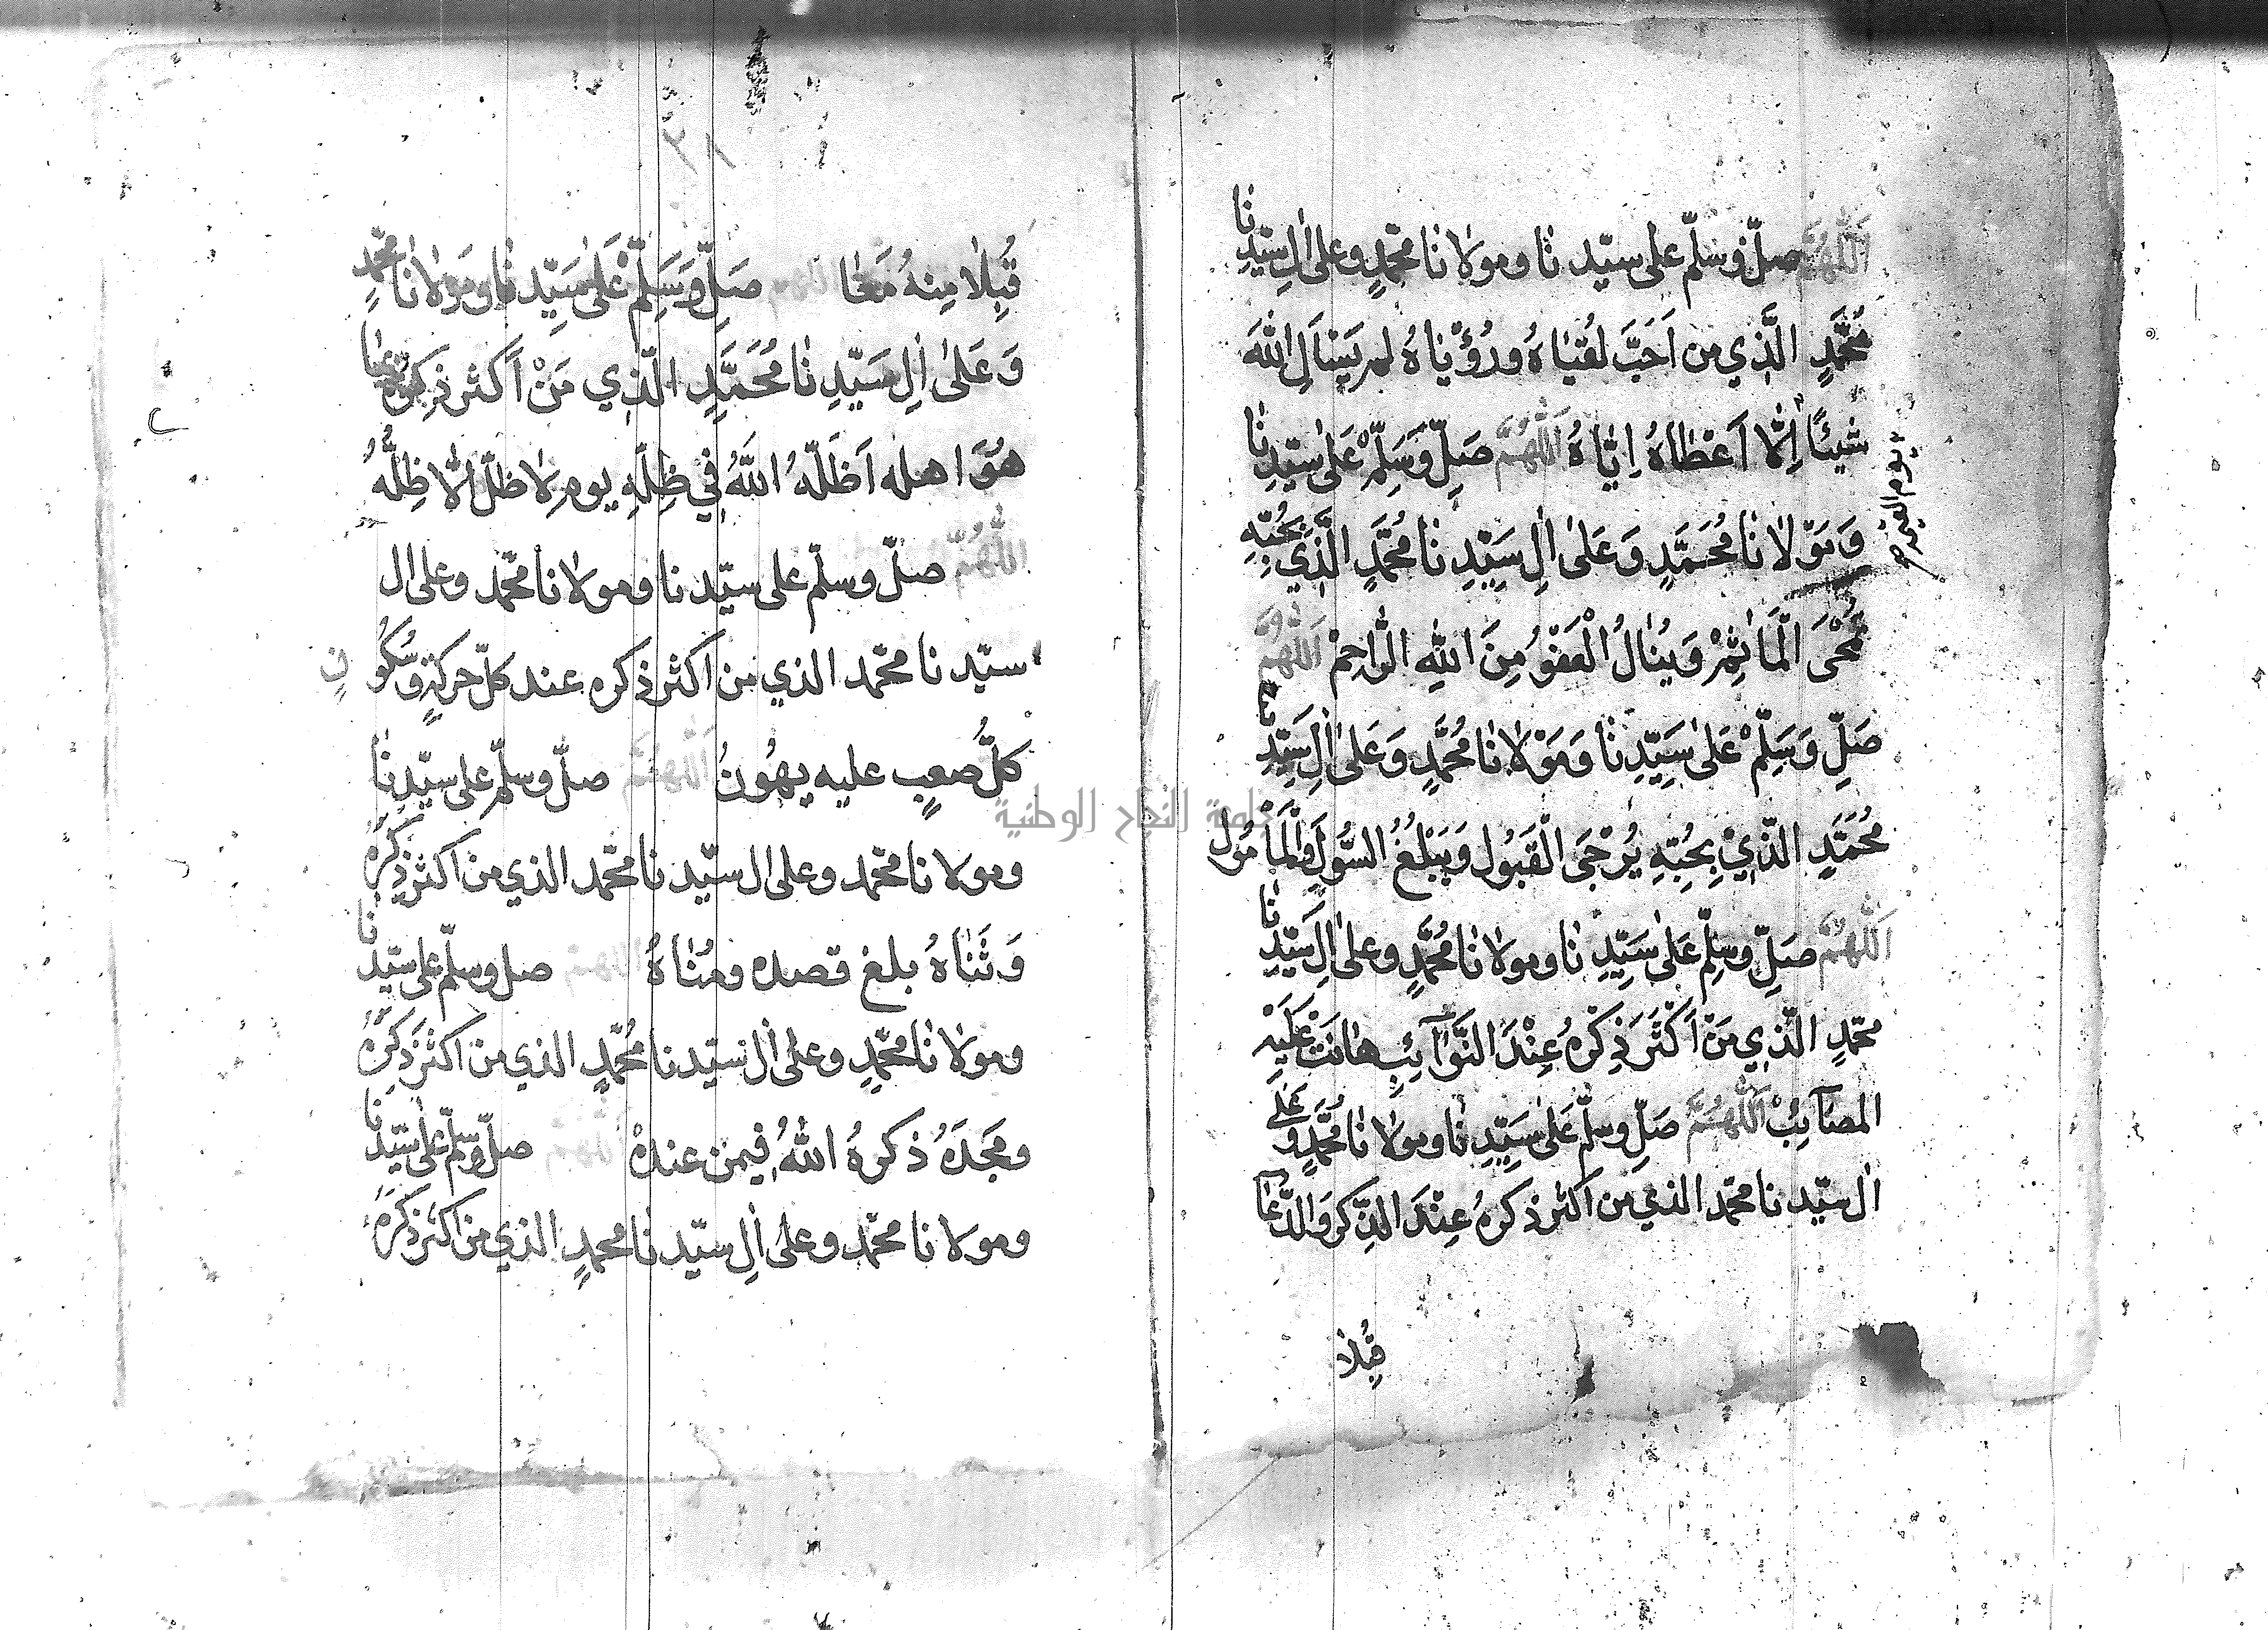 اَللّٰهُمَّ صلّ وسلّم على سيّدنا ومولانا محمّدٍ وعلى اٰلِ سيّدِنا
مُحَمَّدٍ الَّذِي من اَحَبَّ لُقيَاهُ ورُؤْيَاهُ لم يَسْاَلِ اللهَ
شيئًا اِلَّا اَعْطَاهُ اِيَّاهُ اَللّٰهُمَّ صَلِّ وَسَلِّمْ عَلىٰ سَيِّدِنَا
يوم القيٰمة
وَمَوْلَانَا مُحَمَّدٍ وَعَلىٰ اٰلِ سَيِّدِنَا مُحَمَّدٍ الَّذِي بِحُبِّهِ
تُمْحَى الْمَاٰثِمْ وَيُنَالُ الْعَفْوُ مِنَ اللهِ الرَّاحِمْ اَللّٰهُمَّ
صَلِّ وَسَلِّمْ عَلىٰ سَيِّدِنَا وَمَوْلَانَا مُحَمَّدٍ وَعَلىٰ اٰلِ سَيِّدِنَا
مُحَمَّدٍ الَّذِيْ بِحُبِّهِ يُرْجَى الْقَبُول وَيَبْلُغُ السُّولَ وَالْمَأْمُول
اَللّٰهُمَّ صَلِّ وسلِّمْ عَلىٰ سَيِّدِنَا ومولانا مُحَمَّدٍ وعلى اٰلِ سَيّدِنَا
محمّدٍ الَّذِي مَنْ اَكْثَرَ ذِكْرهُ عِنْدَ النَّوَآئِبِ هَانَتْ عَلَيْهِ
المصَآئِبْ اَللّٰهُمَّ صَلِّ وسلّم عَلىٰ سَيِّدِنَا ومولانا مُحَمَّدٍ وَعَلىٰ
اٰل سيّدنا محمّد الذي من اكثر ذكرهُ عِنْدَ الذِّكر والدُّعَآ
قُبِلَا
٣٨
قُبِلَا مِنهُ مَعَا اللهم صَلِّ وَسَلِّمْ عَلىٰ سَيِّدِنَا وَمَولَانَا محمّدٍ
وَعَلىٰ اٰلِ سَيّدِنَا مُحَمَّدٍ الَّذِي مَنْ اَكثر ذِكرهُ بما
هُوَ اهله اَظَلَّهُ اللهُ فِي ظِلِّهِ يوم لا ظلّ اِلَّا ظِلُّهُ
اللّٰهُمَّ صلّ وسلّم على سيّدنا ومولانا محمّد وعلى ال
سيّدنا محمّد الذي من اكثر ذكره عند كلّ حركةٍ وسُكُونٍ
كلُّ صعبٍ عليه يهُونُ اَللّٰهُمَّ صلّ وسلّم على سيّدنا
ومولانا محمّد وعلى ال سيّدنا محمّد الذي من اكثر ذِكرَهُ
وَثَنَاهُ بلغ قصده ومُنَاهُ اللهم صل وسلّم على سيّدنا
ومولانا محمّدٍ وعلى اٰل سيّدنا مُحَمّدٍ الذي من اكثَرَ ذِكرَهُ
ومَجَّدَهُ ذكرهُ اللهُ فيمن عندهْ اللهم صلّ وسلّم على سيّدنا
ومولانا محمّد وعلى اٰلِ سيّدنا محمدٍ الذي من اكثر ذكرَهُ
جامعة النجاح الوطنية